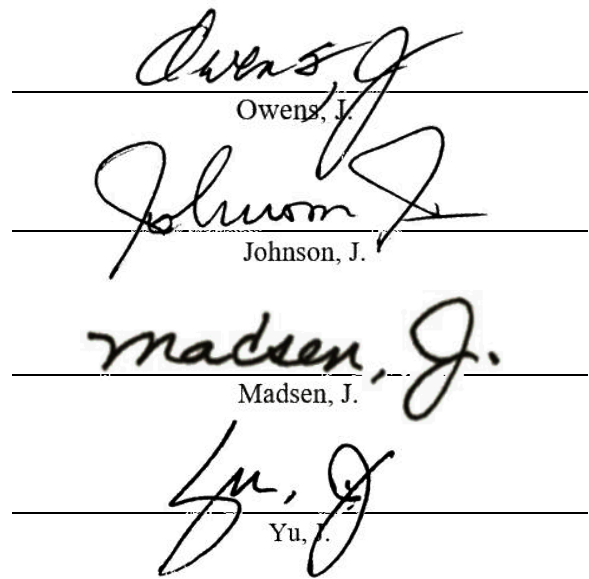 Owens, J
Owens, J.
Johnson J
Johnson, J.
Madsen, J.
Madsen, J.
Yu, J.
Yu, J.